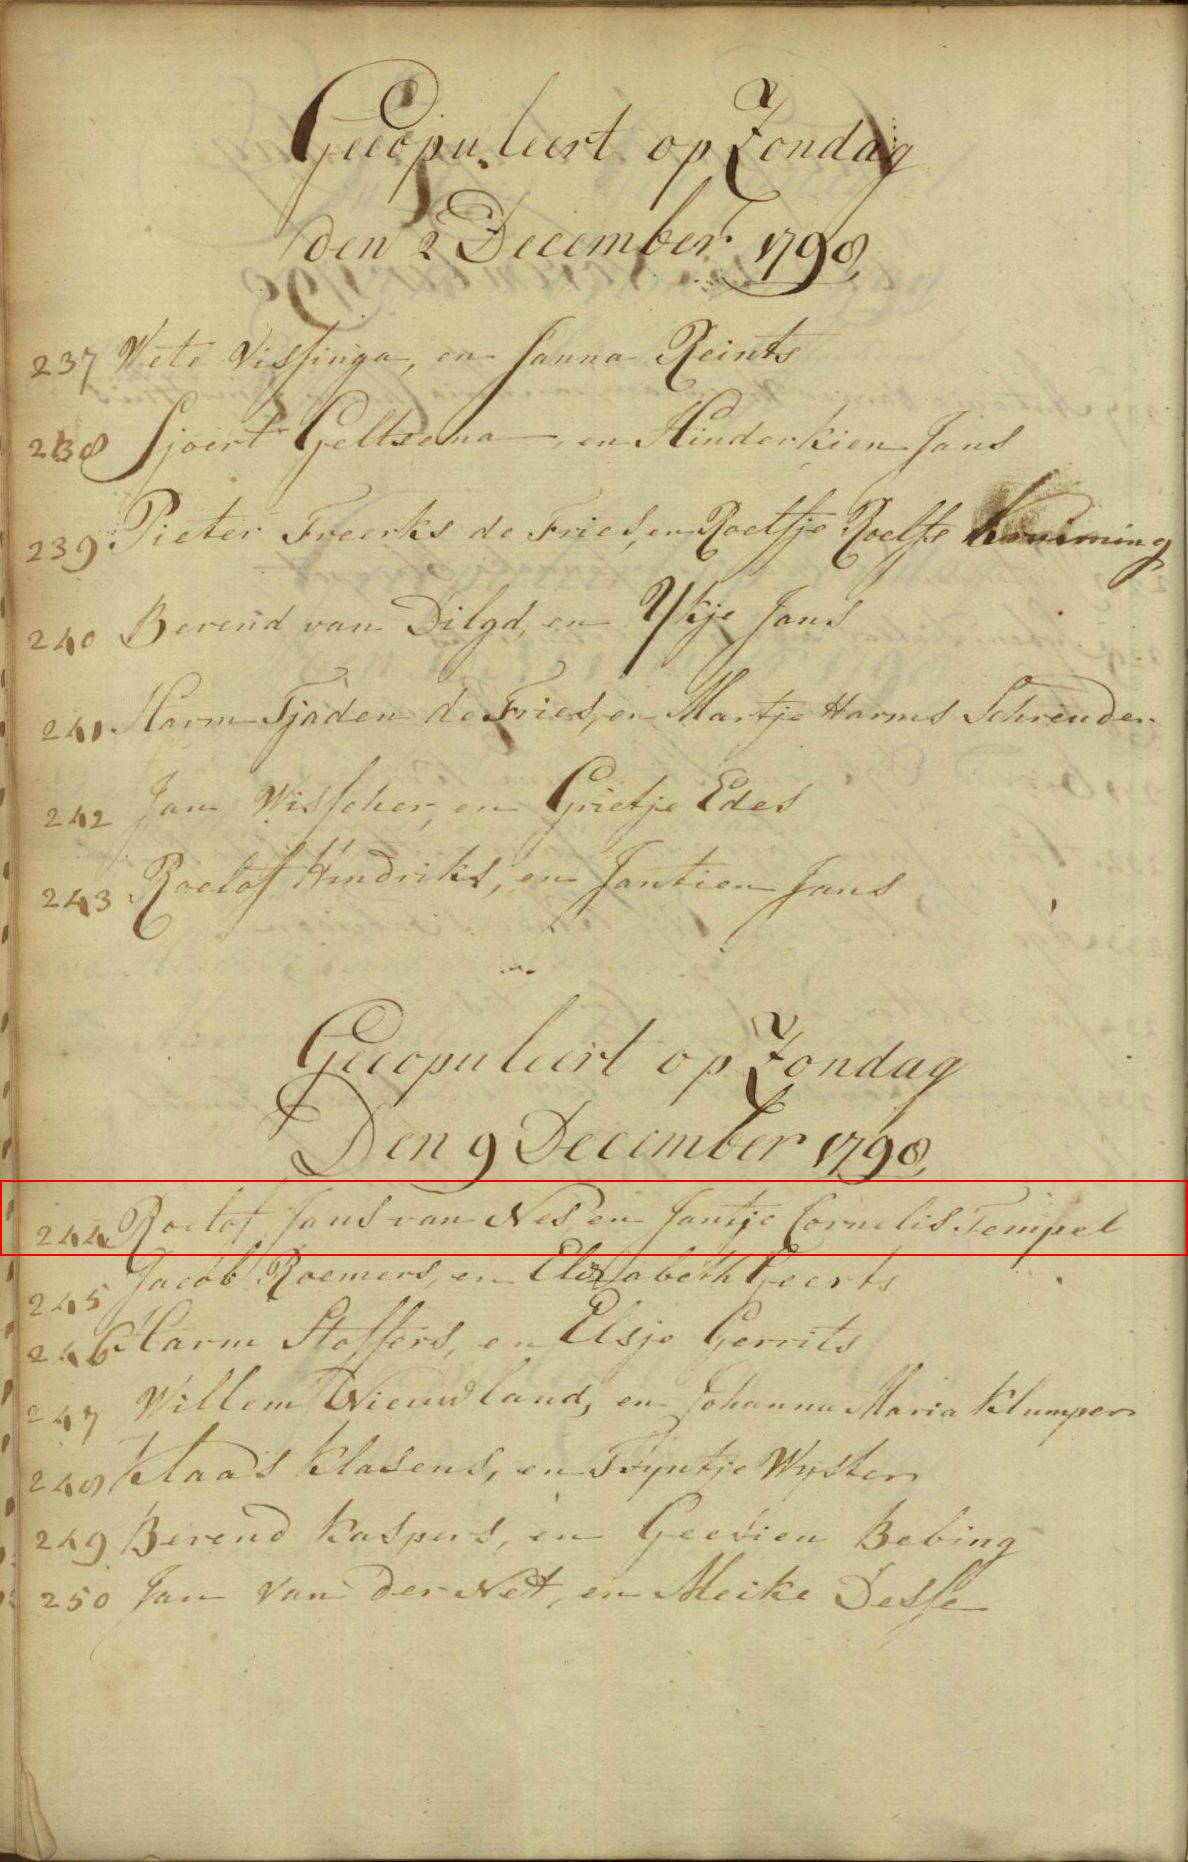 Gecopuleert op Zondag
den 2 December 1798,
237 Wete Vissinga, en Janna Reints
238 Sjoert Geltsema, en Hinderkien Jans
239 Pieter Freerks de Fries, en Roelfje Roelfs Kruiming
240 Berend van Dilgd, en Ykje Jans
241 Harm Tjaden de Fries, en Martje Harms Schreuder
242 Jan Wisscher, en Grietje Edes
243 Roelof Hindriks, en Jantien Jans
Gecopuleert op Zondag
Den 9 December 1798,
244 Roelof Jans van Nes en Jantje Cornelis Tempel
245 Jacob Roemers, en Elizabeth Geerts
246 Harm Stoffers, en Elsje Gerrits
247 Willem Nieuwland, en Johanna Maria Klumper
248 Klaas Klasens, en Tryntje Wyster
249 Berend Kaspers, en Geesien Bebing
250 Jan Van der Net, en Meike Desse